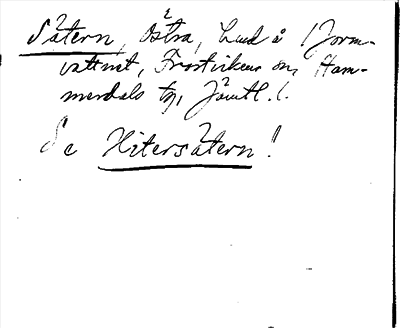 Sätern, Östra, Lud å (Jorm-
vattnet, Frostvikens sn, Ham-
merdals tg, Jämtl.l.
Se Hitersätern!